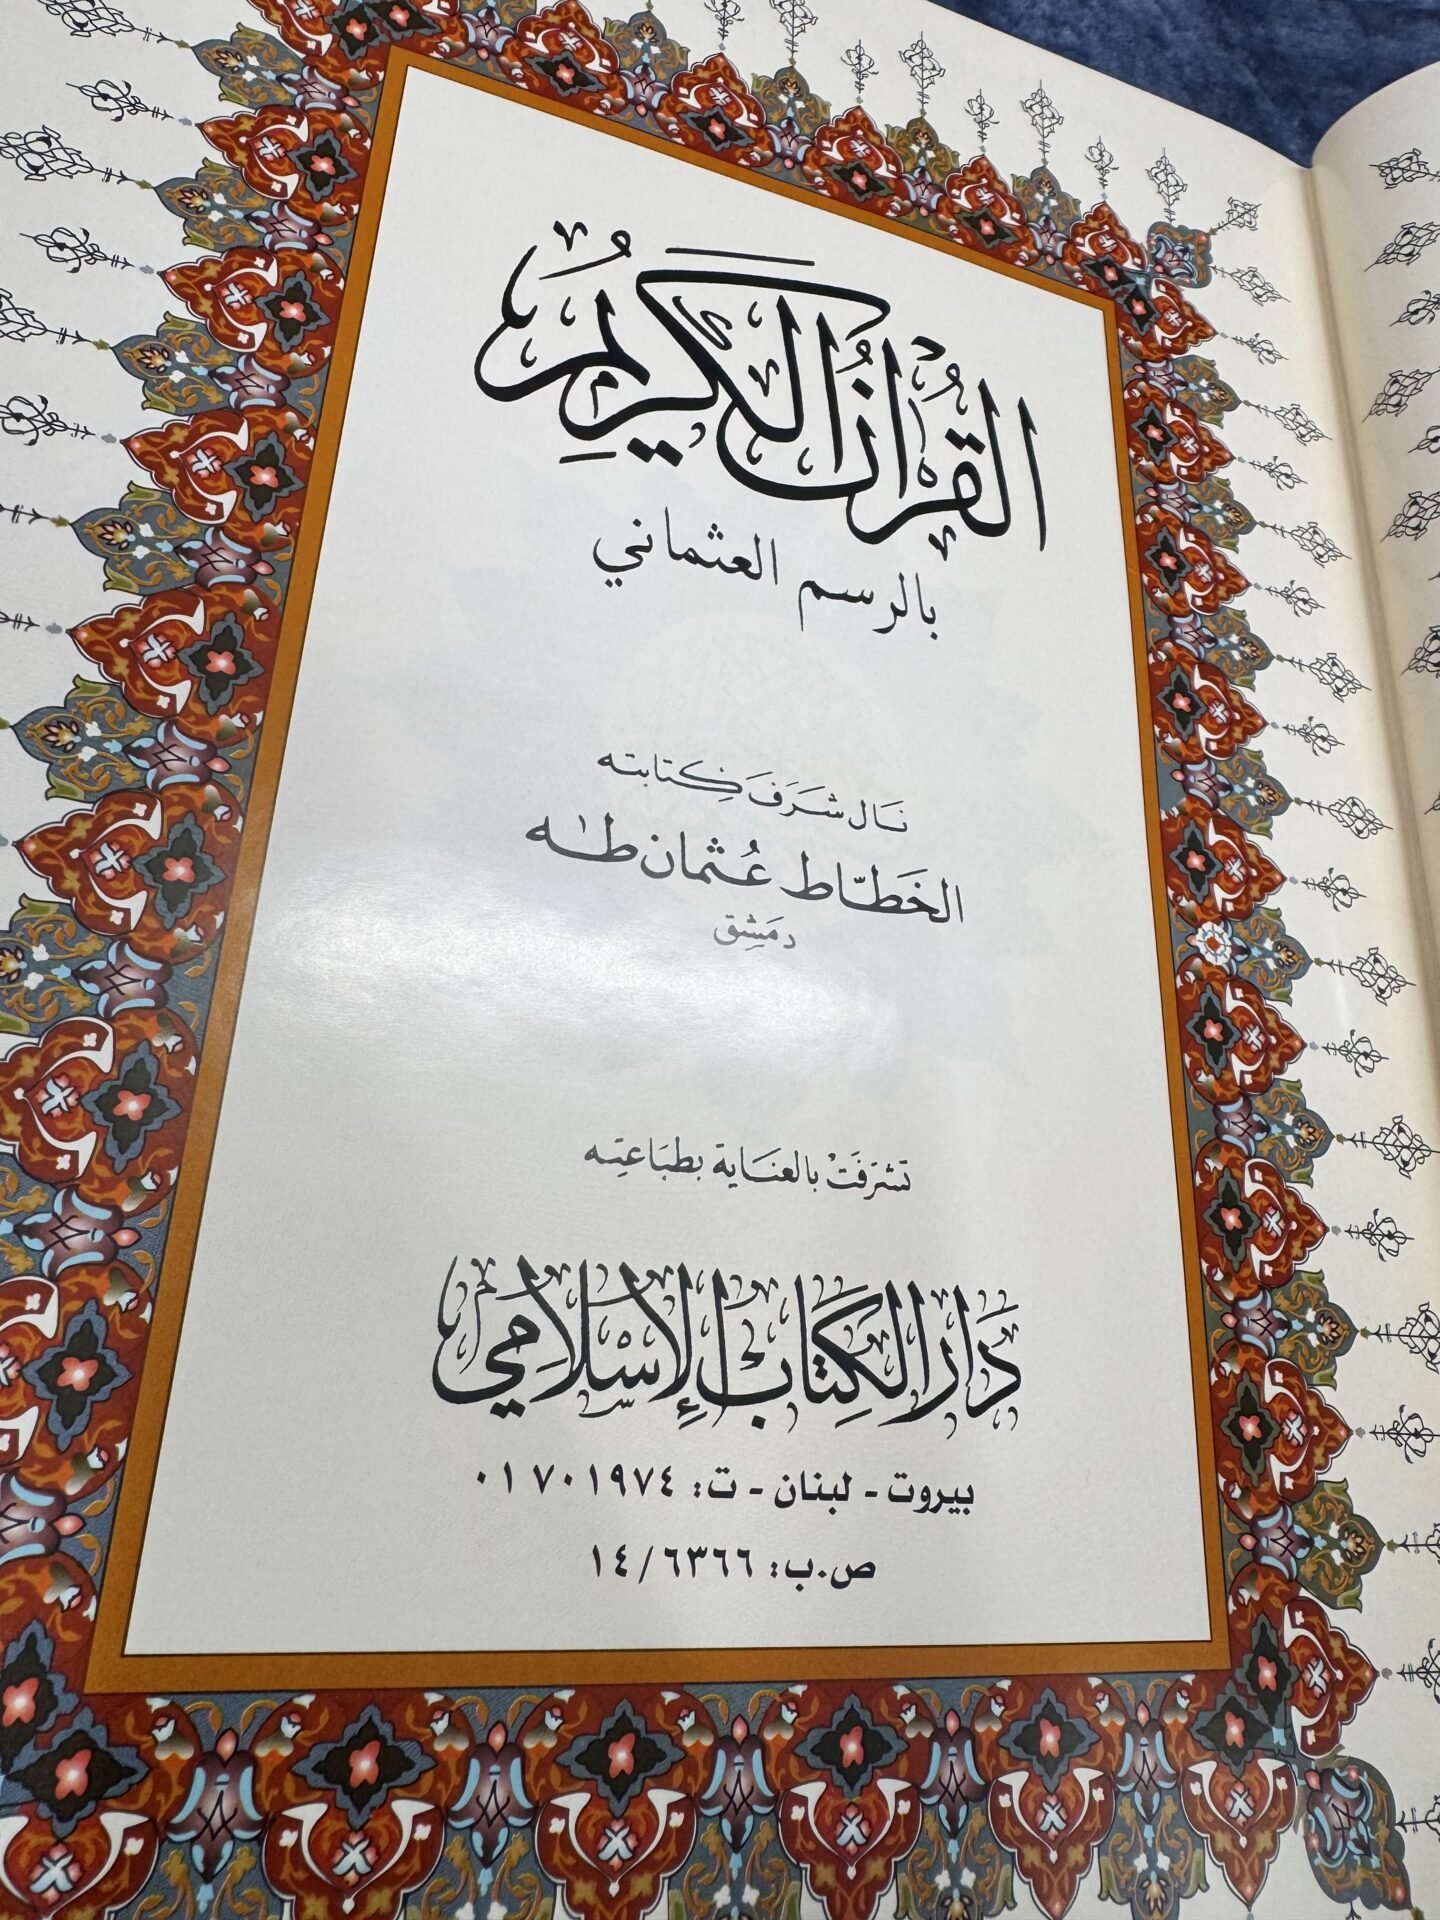 القُرْآنُ الكَرِيْمُ
بالرسم العثماني
نَال شَرَفَ كِتابته
الخَطّاط عُثمان طٰه
دمَشِق
تشرَفَتْ بالعنَاية بطبَاعتِه
دَار الكِتَاب الإِسْلَامِي
بيروت - لبنان - ت: ٠١ ٧٠١٩٧٤
ص.ب: ١٤/٦٣٦٦